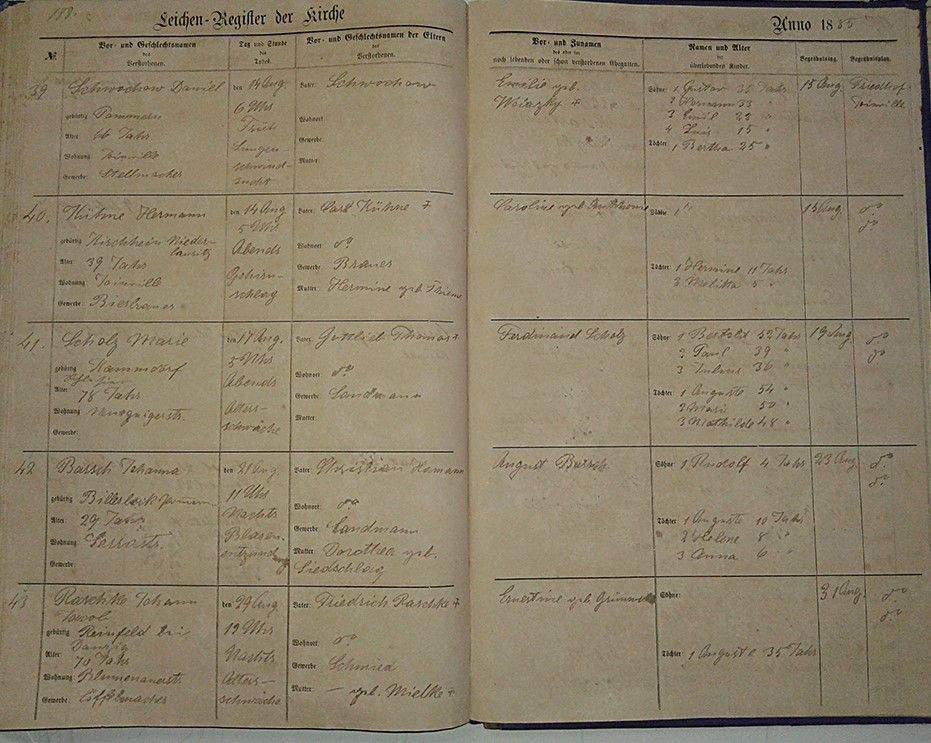 158.
Leichen-Register der Kirche
№
Vor- und Geschlechtsnamen
des
Verstorbenen.
Tag und Stunde
des
Todes.
Vor- und Geschlechtsnamen der Eltern
des
Verstorbenen.
39
Schwochow Daniel
gebürtig Pommern
Alter 66 Jahr
Wohnung Joinville
Gewerbe: Stellmacher
den 14 Aug
6 Uhr
Früh
Lungen-
schwind-
sucht
Vater: Schwochow
Wohnort
Gewerbe:
Mutter:
40.
Kühne Hermann
gebürtig Kirchhein Nieder-
lausitz
Alter: 39 Jahr
Wohnung Joinville
Gewerbe: Bierbrauer
den 14 Aug
5 Uhr
Abends
Gehirn-
schlag
Vater: Carl Kühne +
Wohnort do
Gewerbe: Brauer
Mutter: Hermine geb. Thieme
41.
Scholz Marie
gebürtig Kammdorf
Alter: 78 Jahr
Wohnung
Gewerbe:
den 17 Aug.
5 Uhr
Abends
Alters-
schwäche
Vater: Gottlieb Thomas +
Wohnort do
Gewerbe: Landmann
Mutter:
42
Barsch Johanna
gebürtig Billerbeck Pomm
Alter: 29 Jahr
Wohnung Serrastr.
Gewerbe:
den 21 Aug
11 Uhr
Nachts
Blasen-
entzündg
Vater: Christian Hamann
Wohnort: do
Gewerbe: Landmann
Mutter: Dorothea geb.
Liedschlag
43
Raschke Johann
Jacob
gebürtig Reinfeld bei
Danzig
Alter: 70 Jahr
Wohnung:
Gewerbe: Löffelmacher
den 29 Aug
12 Uhr
Nachts
Alters-
schwäche
Vater: Friedrich Raschke +
Wohnort: do
Gewerbe Schmied
Mutter: — geb. Mielke +
Anno 1885
Vor- und Zunamen
des oder der
noch lebenden oder schon verstorbenen Ehegatten.
Namen und Alter
der
überlebenden Kinder.
Begräbnißtag.
Begräbnißplatz.
Emilie geb.
Wiazky +
Söhne: 1 Gustav Jahr
2 Hermann 33
3 Emil
4 15 "
Töchter: 1 Bertha 25 "
15 Aug
Friedhof
Joinville
Caroline geb.
Söhne:
Töchter: 1 Hermine 11 Jahr
2 Melitta 5 "
15 Aug
do
do
Ferdinand Scholz
Söhne: 1 Berthold 52 Jahr
2 Paul 39 "
3 Julius 36 "
Töchter: 1 Auguste 54 "
2 Marie 50 "
3 Mathilde 48 "
19 Aug
do
do
August Barsch
Söhne: 1 Rudolf 4 Jahr
Töchter: 1 Auguste 10 Jahr
2 Helene 8 "
3 Anna 6 "
23 Aug
do
do
Ernestine geb.
Söhne:
Töchter: 1 Auguste 35 Jahr
31 Aug
do
do